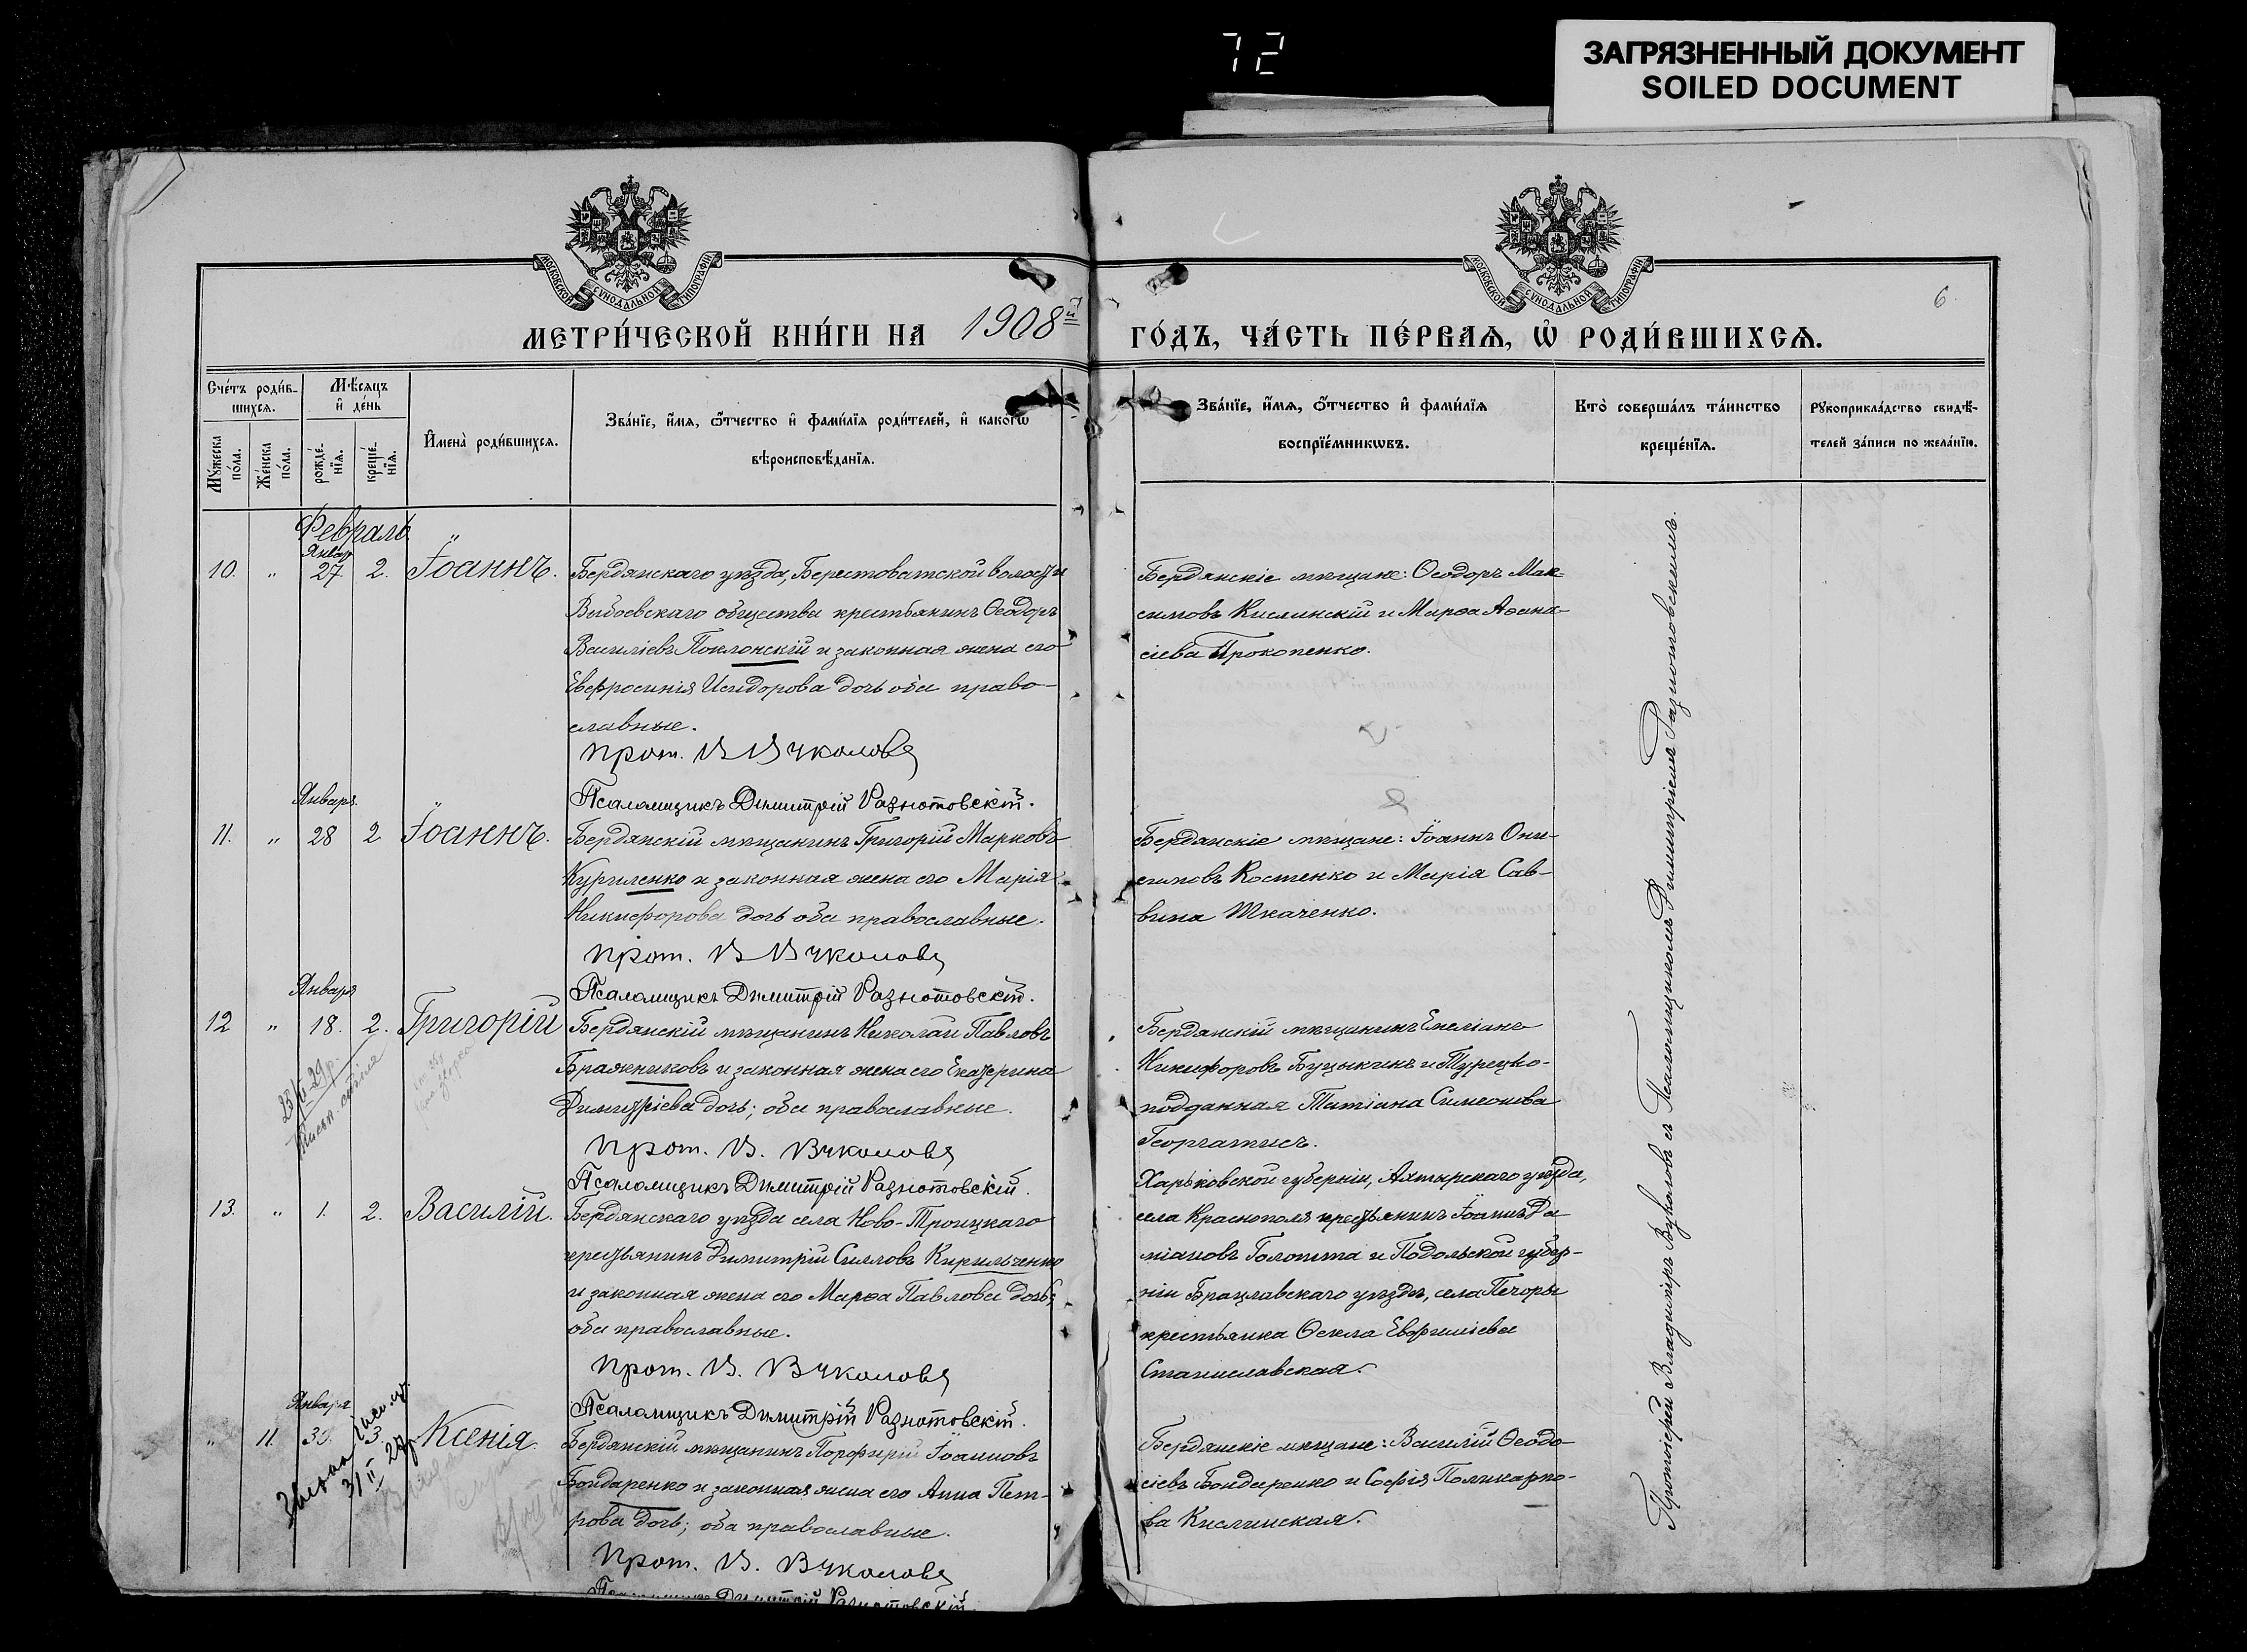 72
ЗАГРЯЗНЕННЫЙ ДОКУМЕНТ
SOILED DOCUMENT
МОСКОВСКОЙ СѴНОДАЛЬНОЙ ТИПОГРАФІИ
МОСКОВСКОЙ СѴНОДАЛЬНОЙ ТИПОГРАФІИ
6
МЕТРИ́ЧЕСКОЙ КНИ́ГИ НА 1908й
ГО́ДЪ, ЧА́СТЬ ПЕ́РВАѦ, Ѡ҆ РОДИ́ВШИХСѦ.
Сче́тъ роди́в-
шихсѧ.
Мѣ́сѧцъ
и҆ де́нь
Мꙋ́жеска
по́ла.
Же́нска
по́ла.
рожде́-
нїѧ.
креще́-
нїѧ.
И҆мена̀ роди́вшихсѧ.
Зва́нїе, и҆́мѧ, ѻ҆́тчество и҆ фами́лїѧ роди́телей, и҆ како́гѡ
вѣроисповѣ́данїѧ.
Зва́нїе, и҆́мѧ, ѻ҆́тчество и҆ фами́лїѧ
воспрїе́мникѡвъ.
Кто̀ соверша́лъ та́инство
креще́нїѧ.
Рꙋкоприкла́дство свидѣ́-
телей за́писи по жела́нїю.
Февраль
Январ
10. " 27 2. Іоаннъ.
Бердянскаго уѣзда, Берестоватской волости
общества крестьянинъ Ѳеодоръ
Василіевъ Поклонскій и законная жена его
Евфросинія Исидорова дочь оба право-
славные.
Прот. В Вуколовъ
Псаломщикъ Димитрій Разнотовскій.
Бердянскіе мѣщане: Ѳеодоръ Мак-
симовъ Кислинскій и Марѳа Аѳана-
сіева Прокопенко.
Января
11. " 28 2 Іоаннъ.
Бердянскій мѣщанинъ Григорій Марковъ
Куриленко и законная жена его Марія
Никифорова дочь оба православные.
Прот. В Вуколовъ
Псаломщикъ Димитрій Разнотовскій.
Бердянскіе мѣщане: Іоаннъ Они-
симовъ Костенко и Марія Сав-
вина Ткаченко.
Января
12 " 18. 2. Григорій
Бердянскій мѣщанинъ Николай Павловъ
Бражниковъ и законная жена его Екатерина
Димитріева дочь; оба православные.
Прот. В. Вуколовъ
Псаломщикъ Димитрій Разнотовскій.
Бердянскій мѣщанинъ Емеліанъ
Никифоровъ Буцыкинъ и Турецко-
подданная Татіана Симеонова
Георгатисъ.
13. " 1. 2. Василій.
Бердянскаго уѣзда села Ново-Троицкаго
крестьянинъ Димитрій Силовъ Кирильченко
и законная жена его Марѳа Павлова дочь;
оба православные.
Прот. В. Вуколовъ
Псаломщикъ Димитрій Разнотовскій.
Харьковской губерніи, Ахтырскаго уѣзда,
села Краснополя крестьянинъ Іоаннъ Да
міановъ Голопта и Подольской губер-
ніи Брацлавскаго уѣзда, села Печоры
крестьянка Ѳекла Евфиміева
Станиславская.
Января
" 11. 30. 3. Ксенія.
Бердянскій мѣщанинъ Порфирій Іоанновъ
Бондаренко и законная жена его Анна Пет-
рова дочь; оба православные.
Прот. В. Вуколовъ
Псаломщикъ Димитрій Разнотовскій.
Бердянскіе мѣщане: Василій Ѳеодо-
сіевъ Бондаренко и Софія Поликарпо-
ва Кислинская.
Протоіерей Владиміръ Вуколовъ съ Псаломщикомъ Димитріемъ Разнотовскимъ.